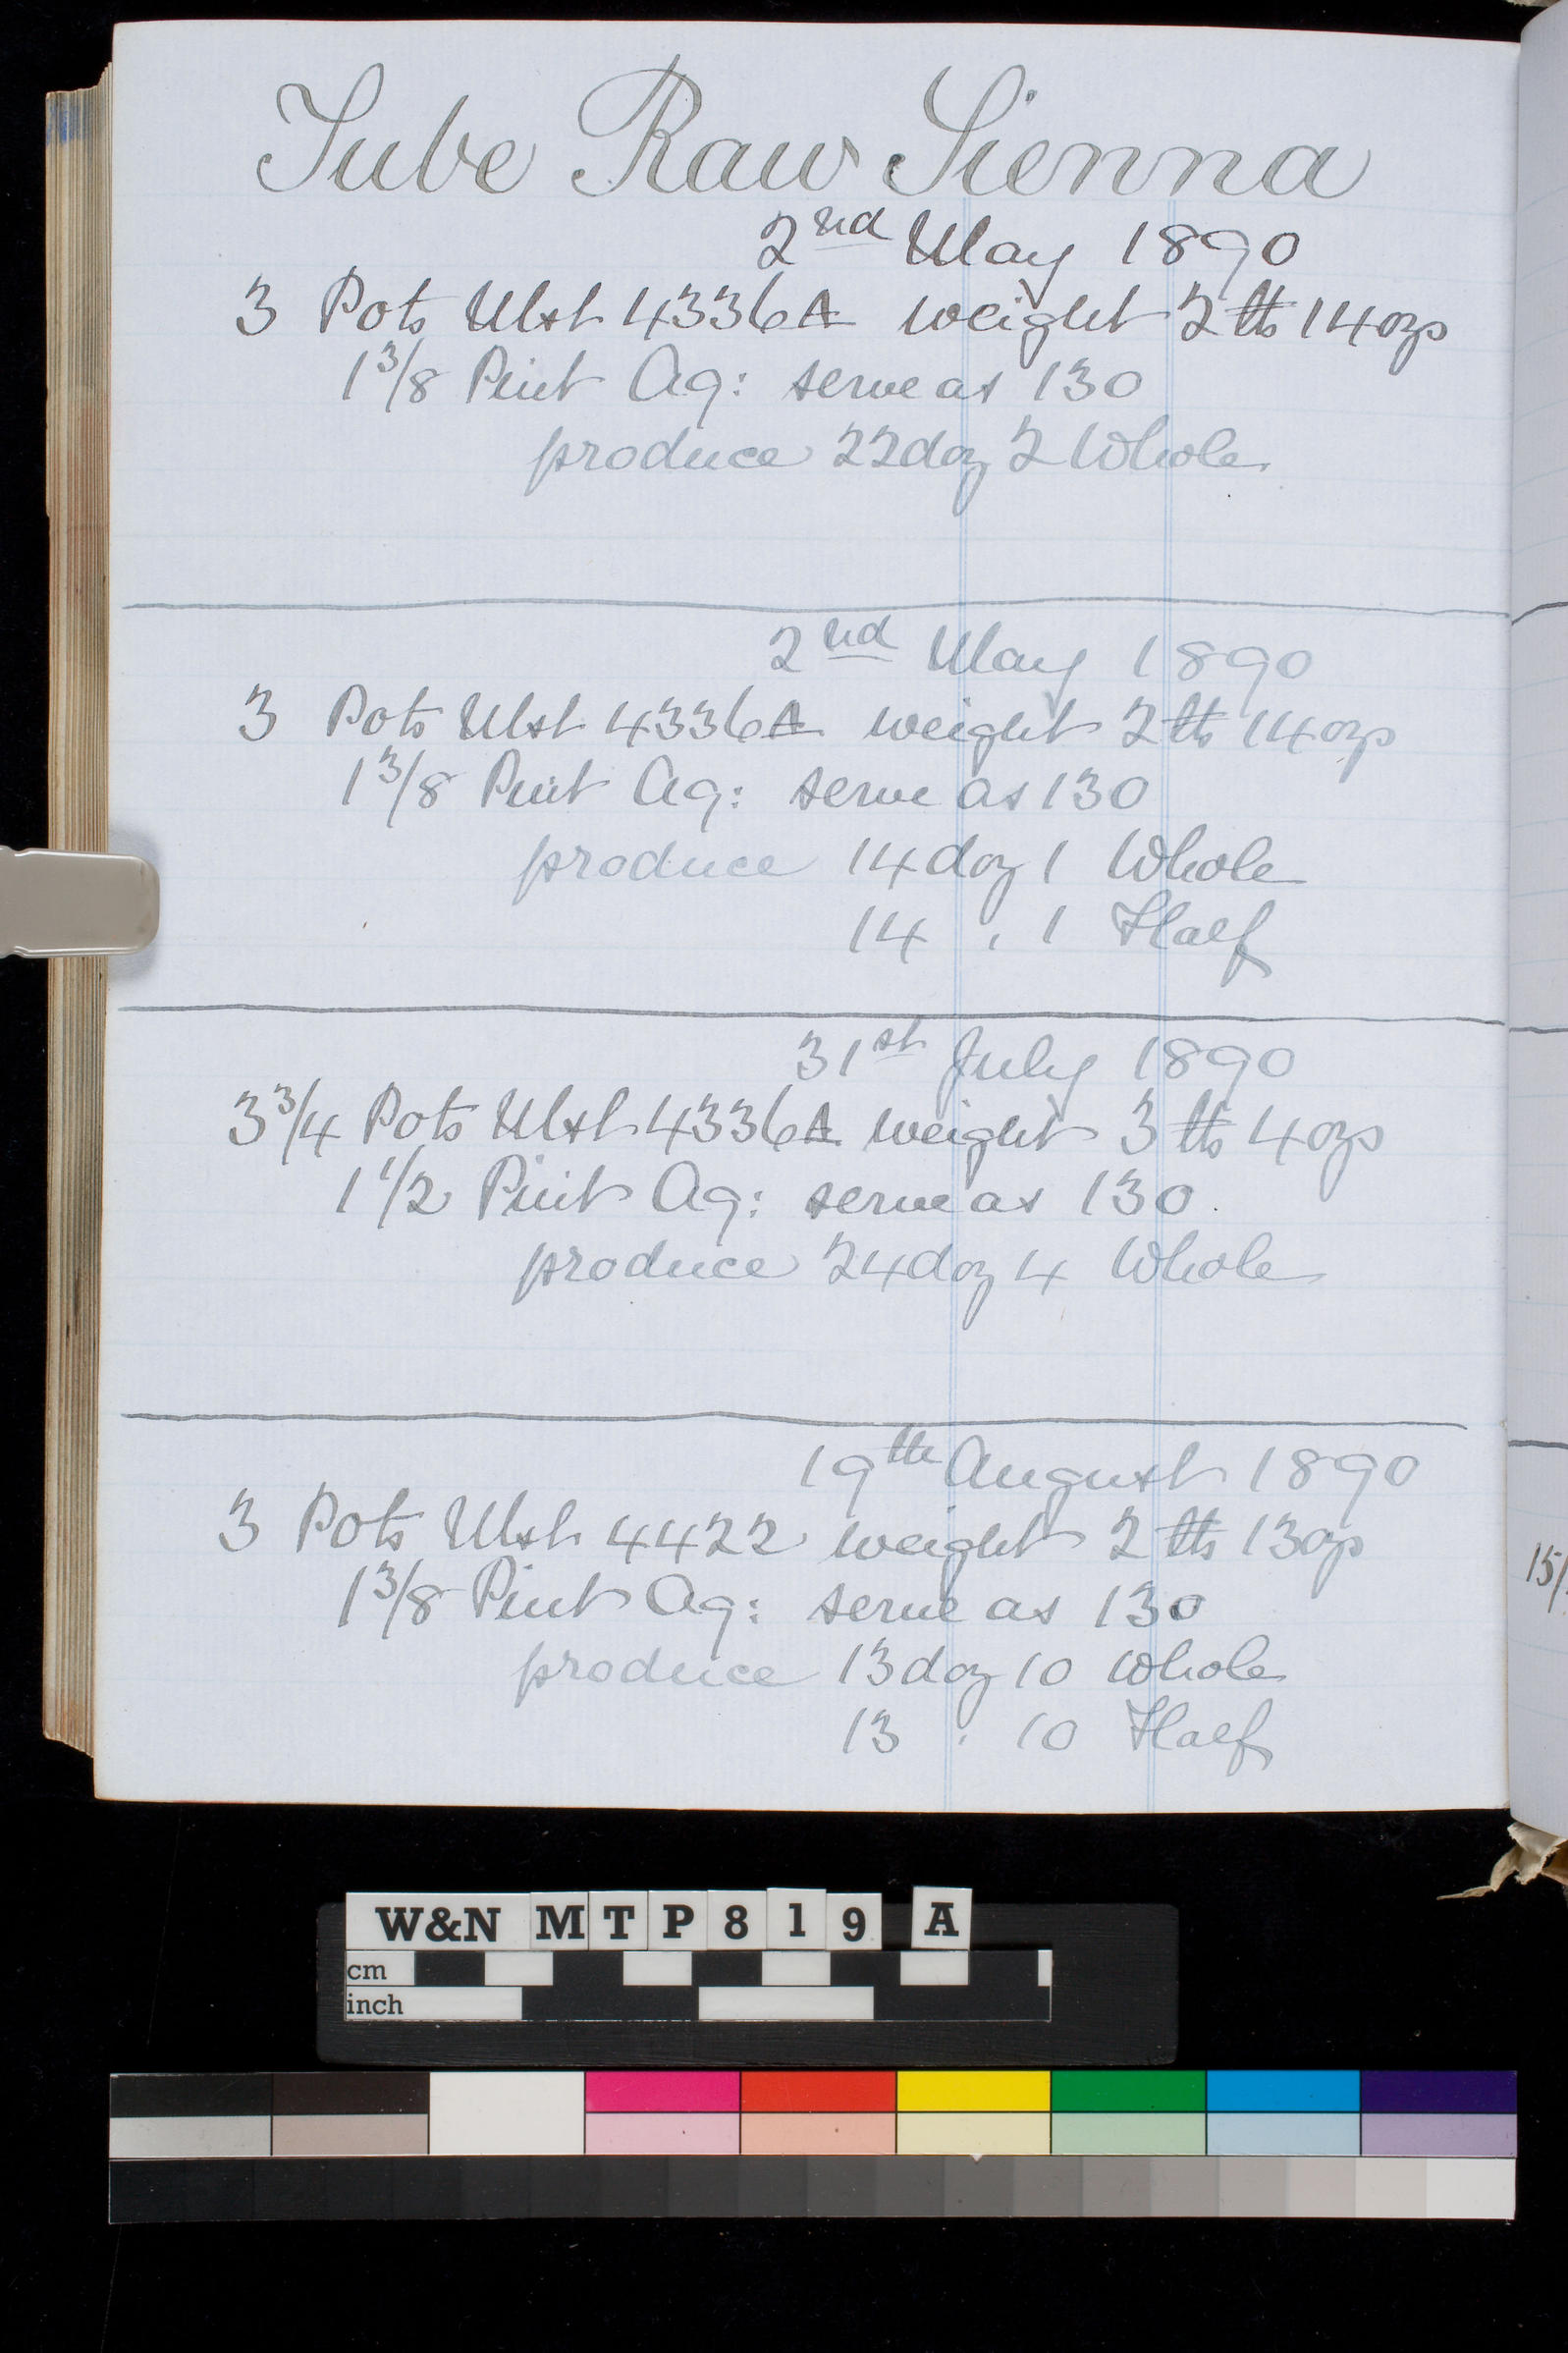 Tube Raw Sienna
2nd May 1890
3 Pots Ulst 4336A weight 2 lbs 14 ozs
1 3/8 Pint Aq: serve as 130
produce 22 doz 2 Whole
2nd May 1890
3 Pots Ulst 4336A weight 2 lbs 14 ozs
1 3/8 Pint Aq: serve as 130
produce 14 doz 1 Whole
14 , 1 Half
31st July 1890
3 3/4 Pots Ulst 4336A weight 3 lbs 4 ozs
1 1/2 Pint Aq: serve as 130
produce 24 doz 4 Whole
19th August 1890
3 Pots Ulst 4422 weight 2 lbs 13 ozs
1 3/8 Pint Aq: serve as 130
produce 13 doz 10 Whole
13 , 10 Half
W&N MTP819 A
cm
inch